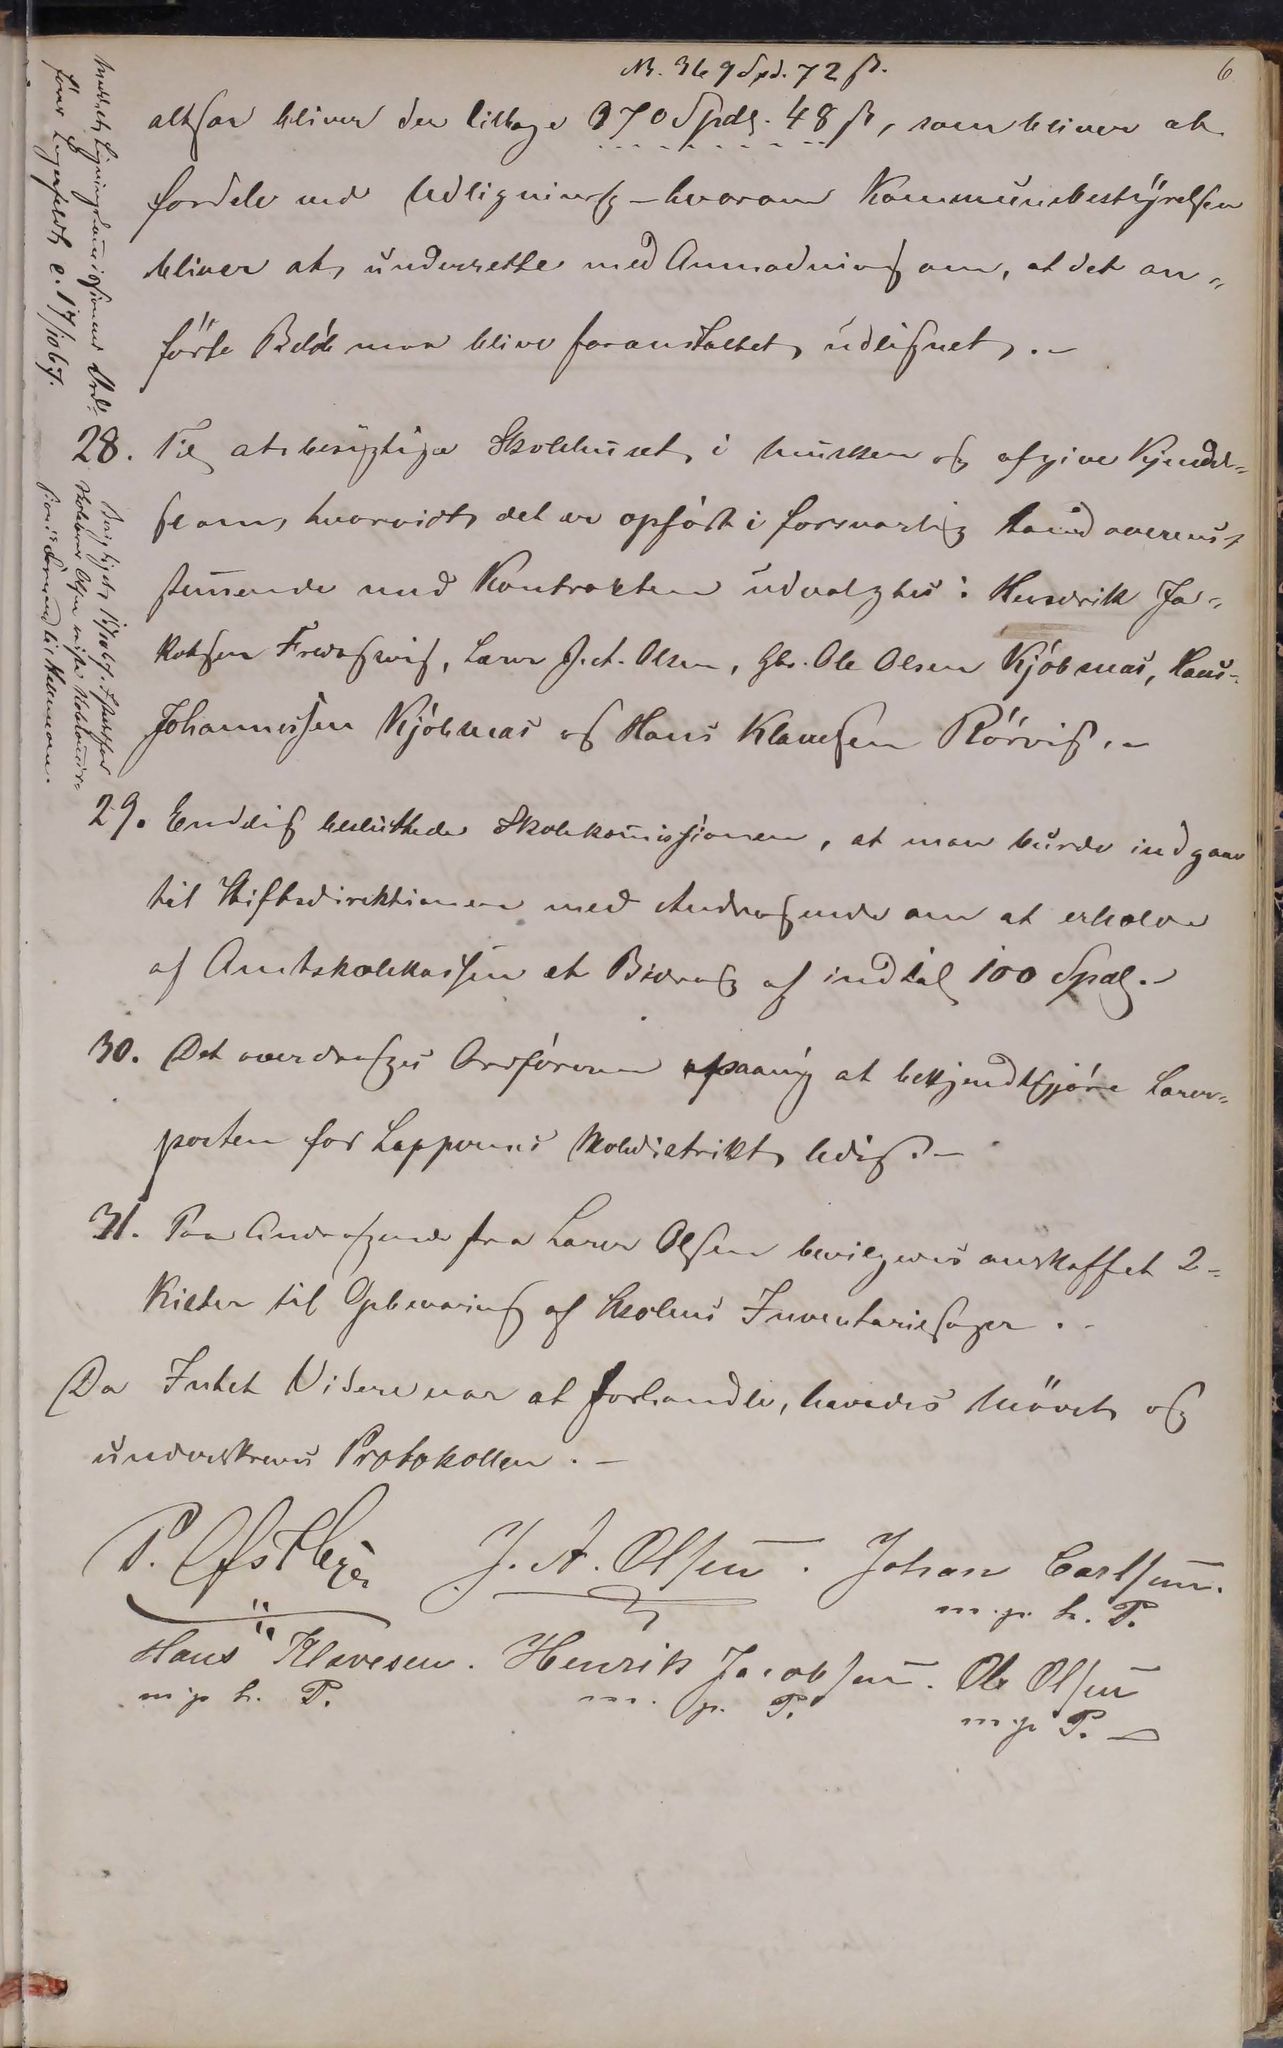 Nb. 369 Spd. 72 ß.
6
altsaa bliver der tilbage 370 Spdlr. 48 ß, som bliver at
fordele ved Udligning – hvorom Kommunebestyrelsen
bliver at underrette med Anmodning om, at det an„
førte Beløb maa blive foranstaltet udlignet. –
28. Til at besigtige Skolehuset i Musken og afgive Kjendel„
se om, hvorvidt det er opført i forsvarlig Stand overens„
stemmende med Kontrakten udvalgtes: Hendrik Ja„
kobsen Fredagsvig, Lærer J. A. Olsen, Gbr. Ole Olsen Kjöbnæs, Hans
Johannessen Kjöbnæs og Hans Klavesen Rörvig. –
29. Endelig besluttede Skolekomissionen, at man burde indgaa
til Stiftsdirektionen med Andragende om at erholde
af Amtskolekassen et Bidrag af indtil 100 Spdlr. –
30. Det overdrages Ordføreren at bekjendtgjøre Lærer„
posten for Lappernes Skoledistrikt ledig. –
31. Paa Andragende fra Lærer Olsen bevilgedes anskaffet 2„
Kister til Opbevaring af Skolens Inventariesager. –
Da Intet Videre var at forhandle, hævedes Mödet og
underskreves Protokollen. –
P. J. A. Olsen. Johan Carlsen.
m. p. h. P.
Hans Klavesen. Henrik Jacobsen. Ole Olsen
m. p. h. P. m. p. P. m. p. P.